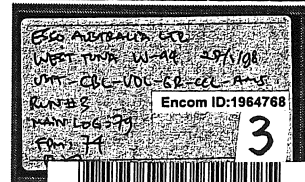 ESSO AUSTRALIA LTD
WEST TUNA W-44 28/1/98
CBL-VDL-GR-CCL-AMS
RUN#3
MAIN LOG=79
Encom ID:1964768
3